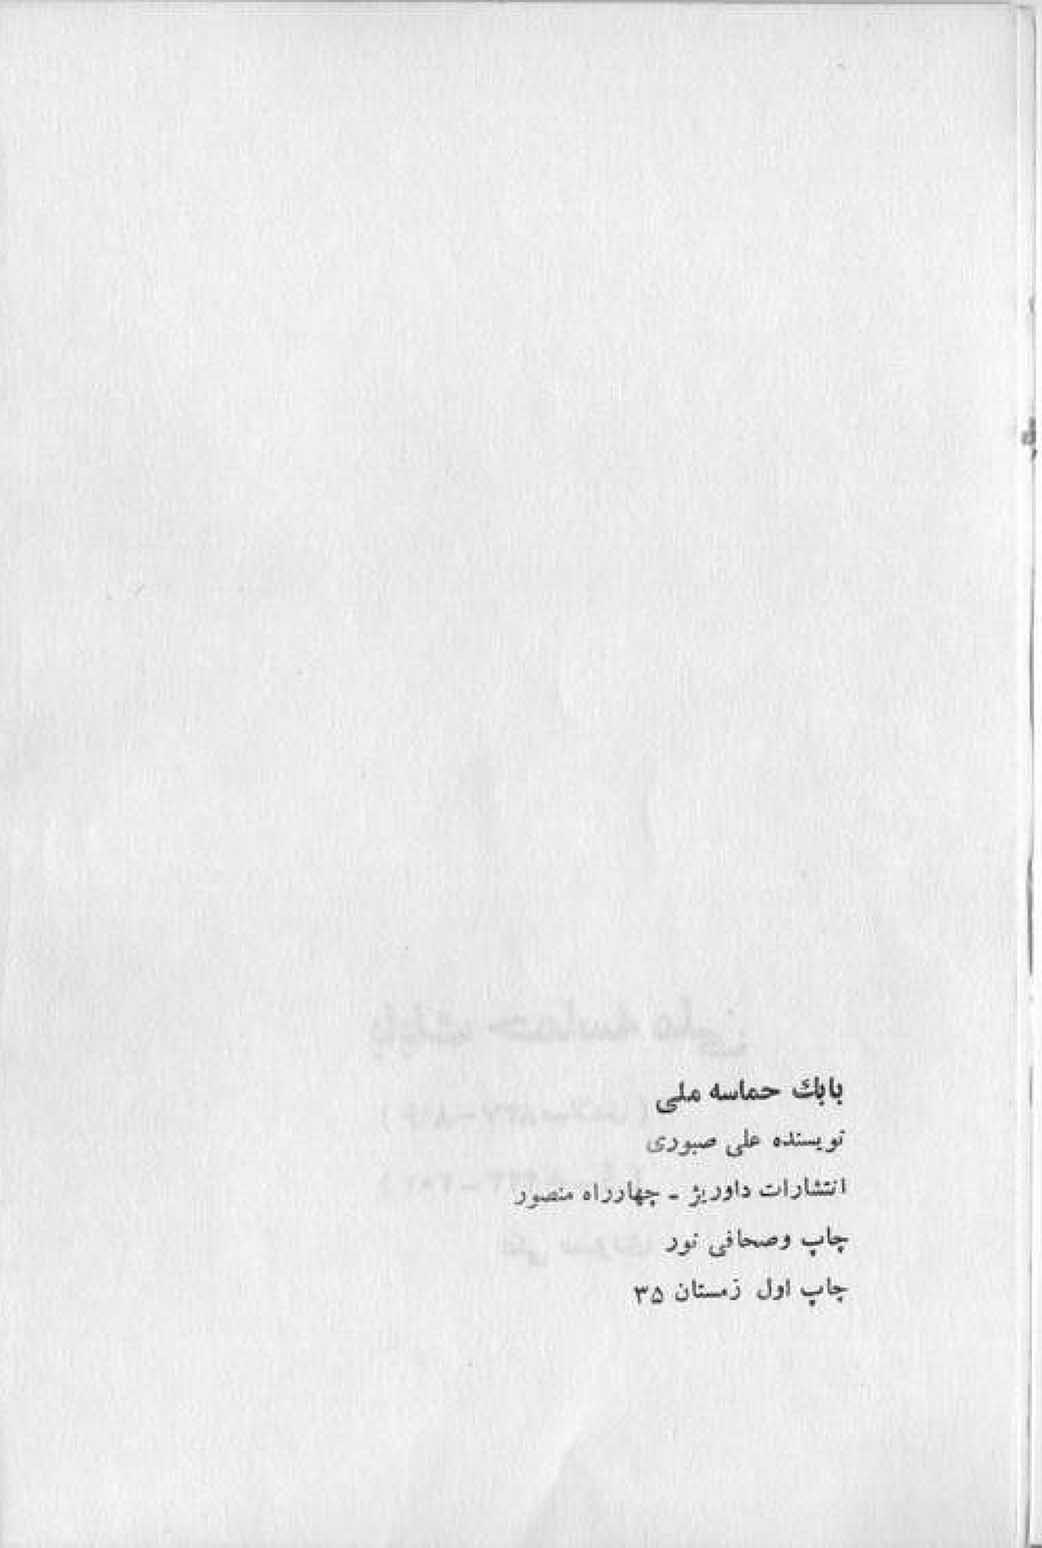 بابك حماسه ملی
نویسنده علی صبوری
انتشارات داورپژ - چهارراه منصور
چاپ وصحافی نور
چاپ اول زمستان ۳۵